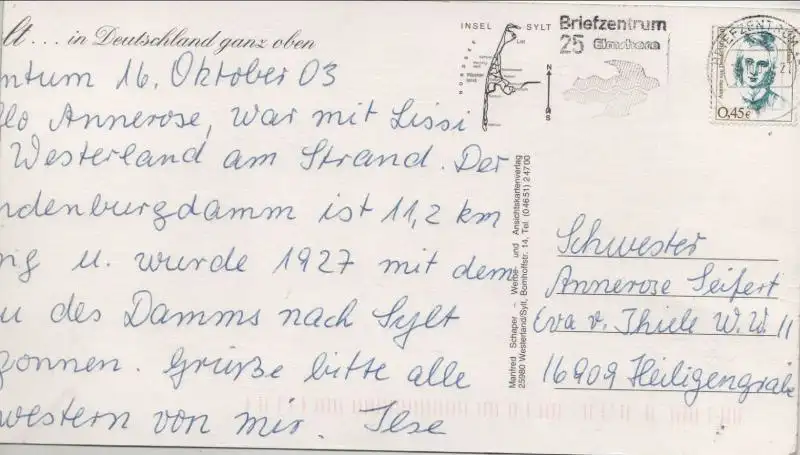 lt ... in Deutschland ganz oben
ntum 16. Oktober 03
llo Annerose, war mit Lissi
Westerland am Strand. Der
ndenburgdamm ist 11,2 km
ng u. wurde 1927 mit dem
u des Damms nach Sylt
gonnen. Grüße bitte alle
western von mir. Ilse
INSEL SYLT
NORDSEE
List
Westerland
N
S
Manfred Schaper – Werbe- und Ansichtskartenverlag
25980 Westerland/Sylt, Bomhoffstr. 14, Tel. (04651) 24700
Briefzentrum
25 Elmshorn
BRIEFZENTRUM
0,45€
Schwester
Annerose Seifert
Eva v. Thiele W. W. 11
16909 Heiligengrabe